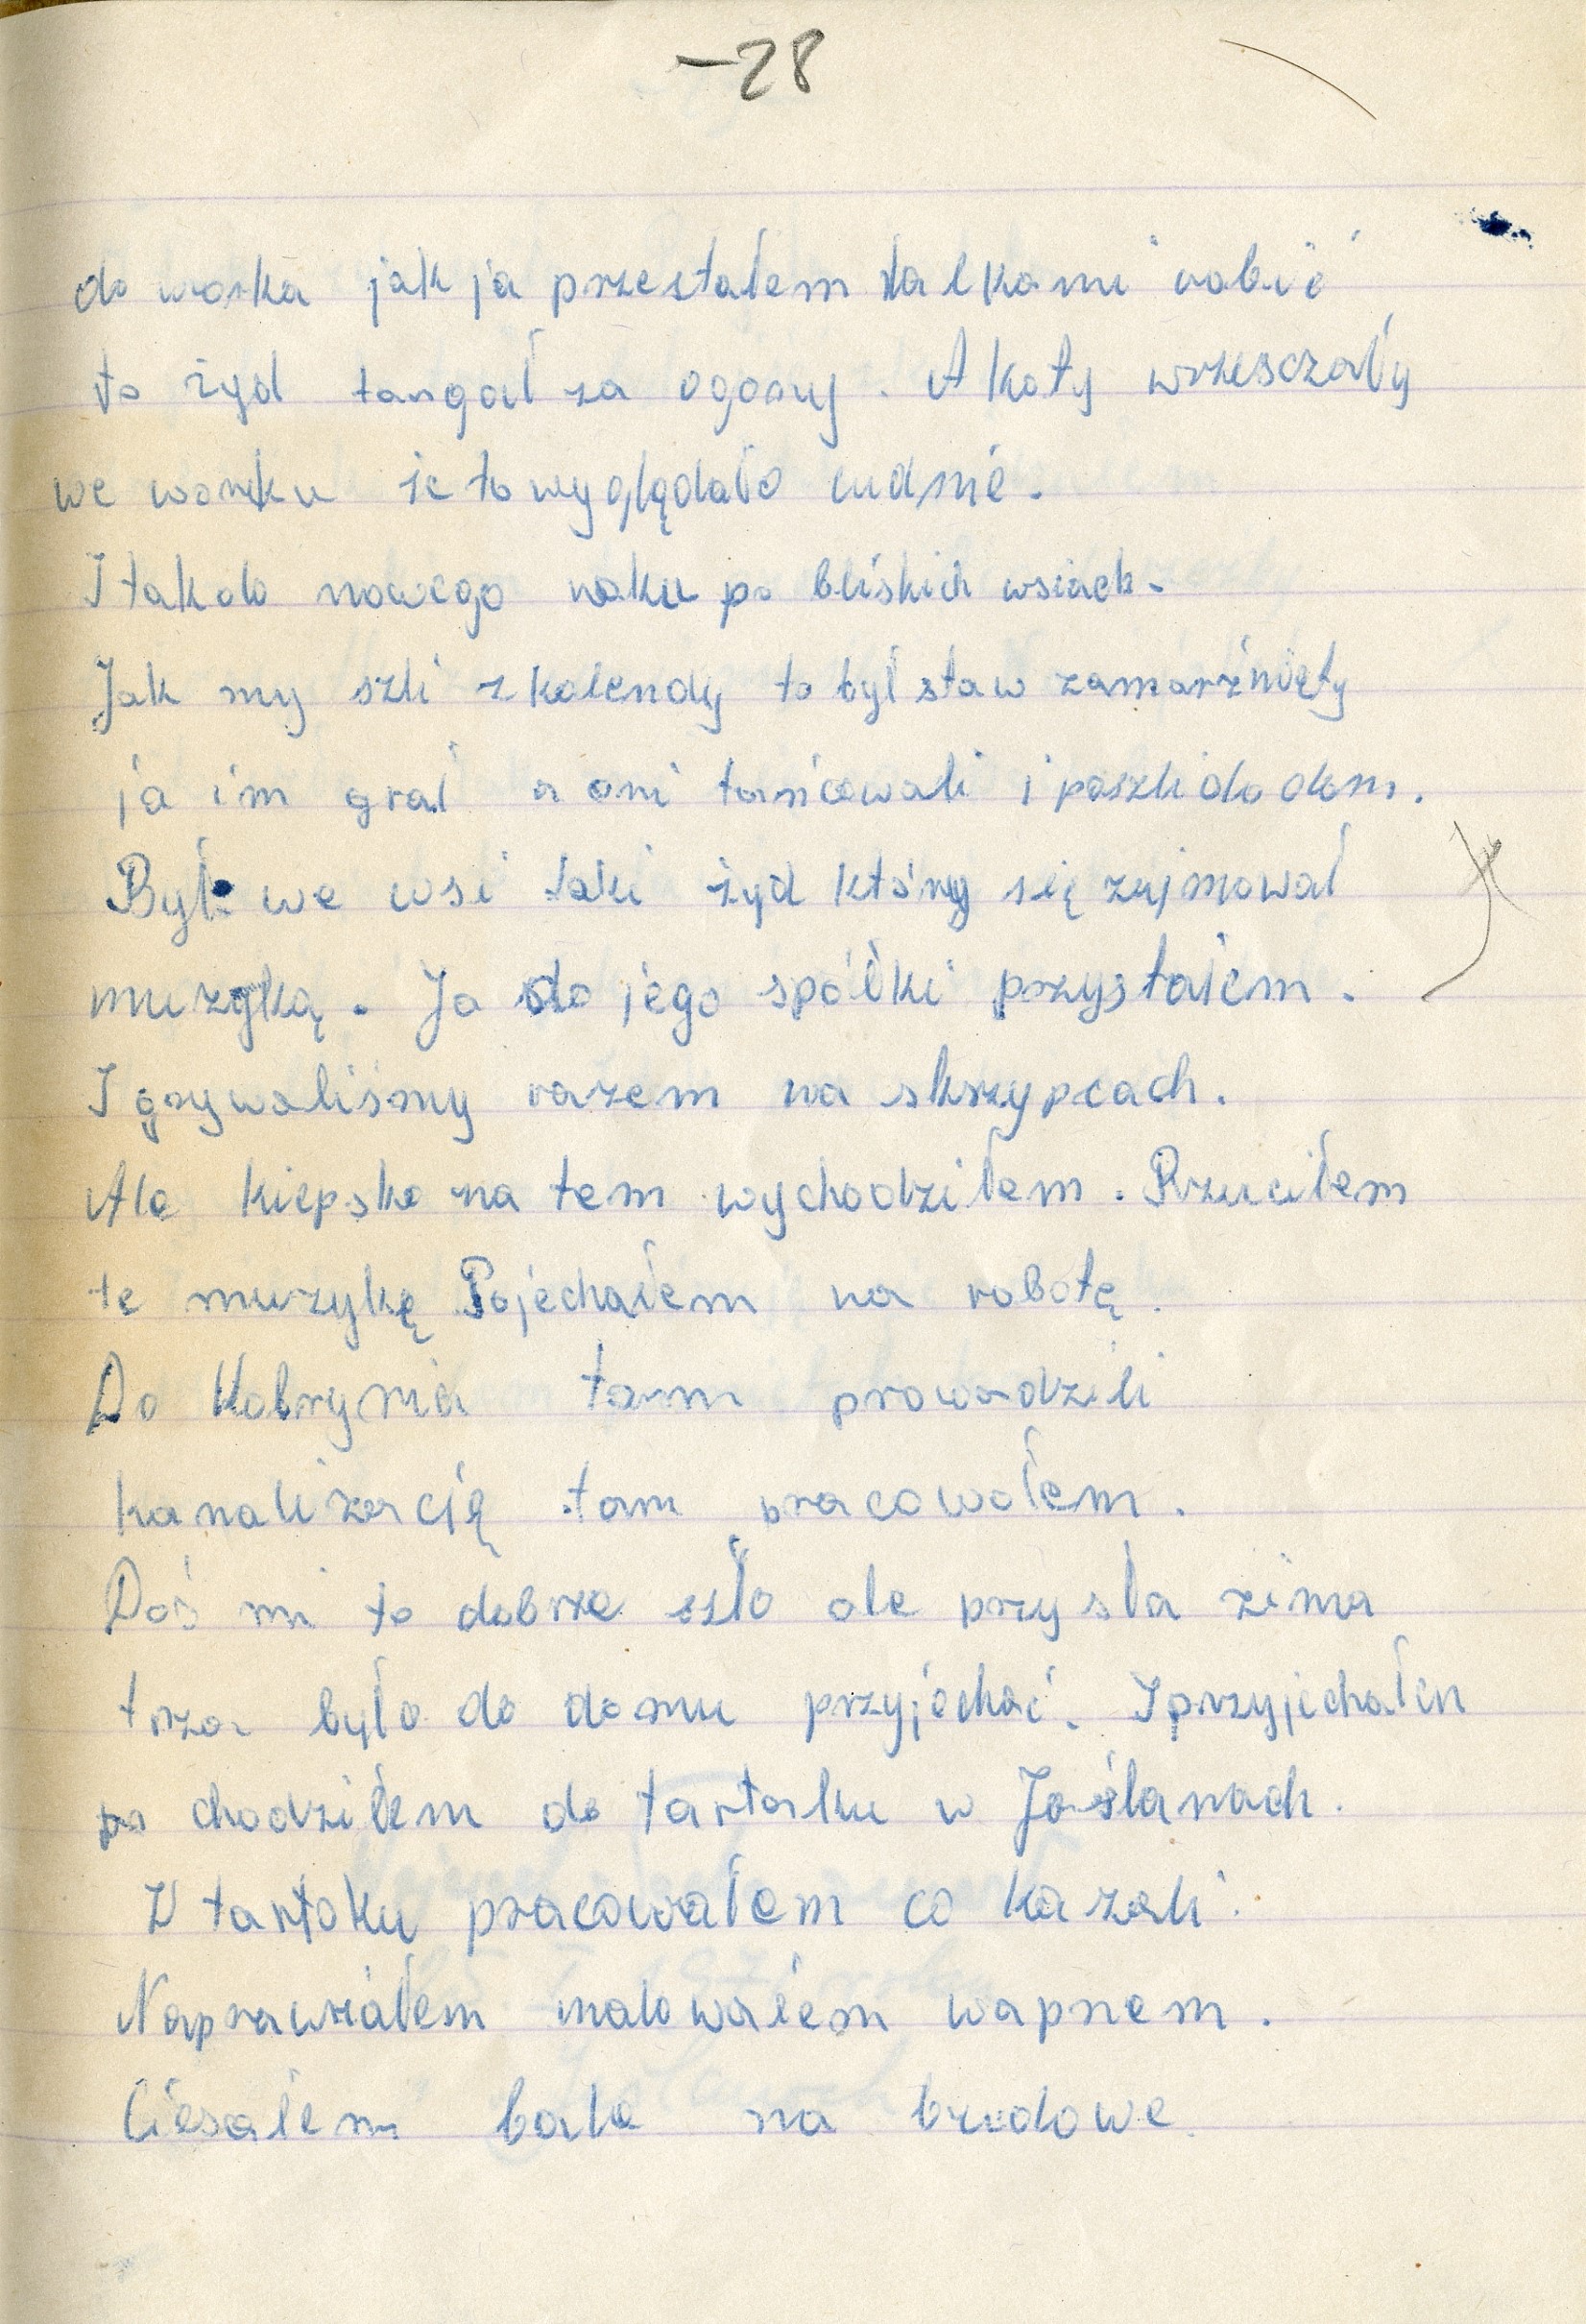 -28
do worka jak ja przestałem lalkami robić
to żyd targał za ogony. A koty wrzesczały
we worku że to wyglądało cudnie.
I tak do nowego roku po bliskich wsiach.
Jak my szli z kolendy to był staw zamarźnięty
ja im grał a oni tańcowali i poszli do dom.
Był we wsi taki żyd który się zajmował
muzyką. Ja do jego spółki przystałem.
I grywaliśmy razem na skrzypcach.
Ale kiepsko na tem wychodziłem. Rzuciłem
te muzykę Pojechałem na robotę.
Do Kobrynia tam prowadzili
kanalizacją tam pracowałem.
Doś mi to dobrze szło ale przysła zima
trza było do domu przyjechać. I przyjechałem
chodziłem do tartaku w Joślanach.
W tartaku pracowałem co kazali.
Naprawiałem malowałem wapnem.
Ciesałem bale na budowe.